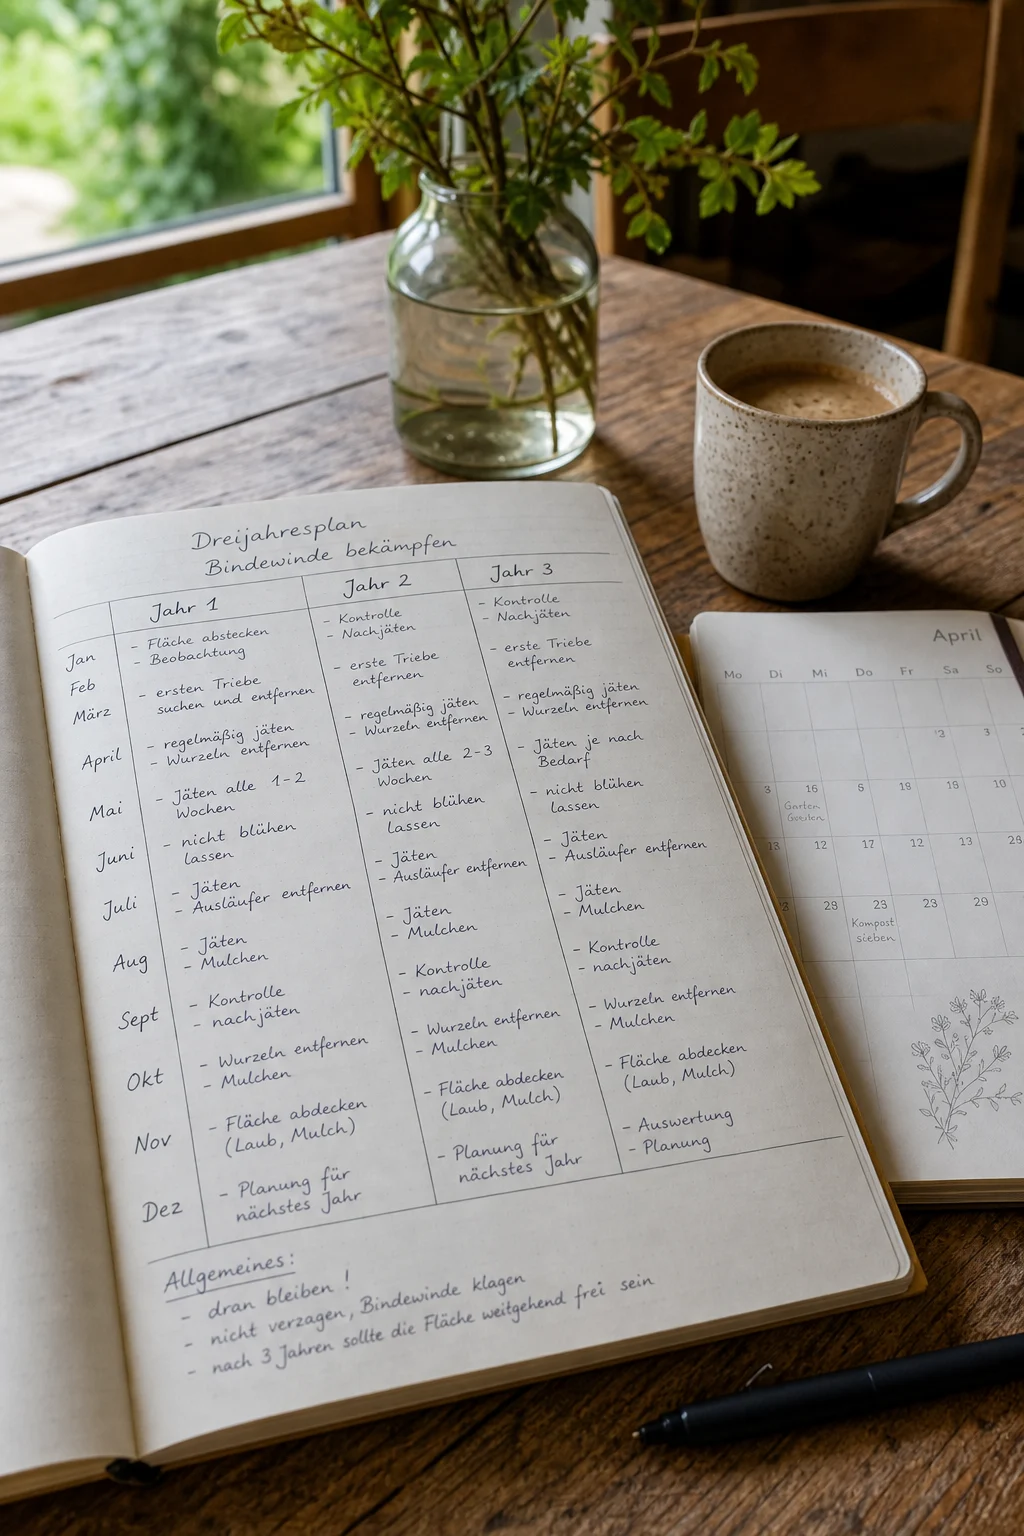 Dreijahresplan
Bindewinde bekämpfen
Jahr 1
Jahr 2
Jahr 3
Jan
- Fläche abstecken
- Beobachtung
- Kontrolle
- Nachjäten
- Kontrolle
- Nachjäten
Feb
März
- ersten Triebe
suchen und entfernen
- erste Triebe
entfernen
- erste Triebe
entfernen
April
- regelmäßig jäten
- Wurzeln entfernen
- regelmäßig jäten
- Wurzeln entfernen
- regelmäßig jäten
- Wurzeln entfernen
Mai
- Jäten alle 1-2
Wochen
- Jäten alle 2-3
Wochen
- Jäten je nach
Bedarf
Juni
- nicht blühen
lassen
- nicht blühen
lassen
- nicht blühen
lassen
Juli
- Jäten
- Ausläufer entfernen
- Jäten
- Ausläufer entfernen
- Jäten
- Ausläufer entfernen
Aug
- Jäten
- Mulchen
- Jäten
- Mulchen
- Jäten
- Mulchen
Sept
- Kontrolle
- nachjäten
- Kontrolle
- nachjäten
- Kontrolle
- nachjäten
Okt
- Wurzeln entfernen
- Mulchen
- Wurzeln entfernen
- Mulchen
- Wurzeln entfernen
- Mulchen
Nov
- Fläche abdecken
(Laub, Mulch)
- Fläche abdecken
(Laub, Mulch)
- Fläche abdecken
(Laub, Mulch)
Dez
- Planung für
nächstes Jahr
- Planung für
nächstes Jahr
- Auswertung
- Planung
Allgemeines:
- dran bleiben !
- nicht verzagen, Bindewinde klagen
- nach 3 Jahren sollte die Fläche weitgehend frei sein
April
Mo Di Mi Do Fr Sa So
3
3 16 6 18 18 10
Garten
13 12 17 12 13 28
28 23 23 29
Kompost
sieben